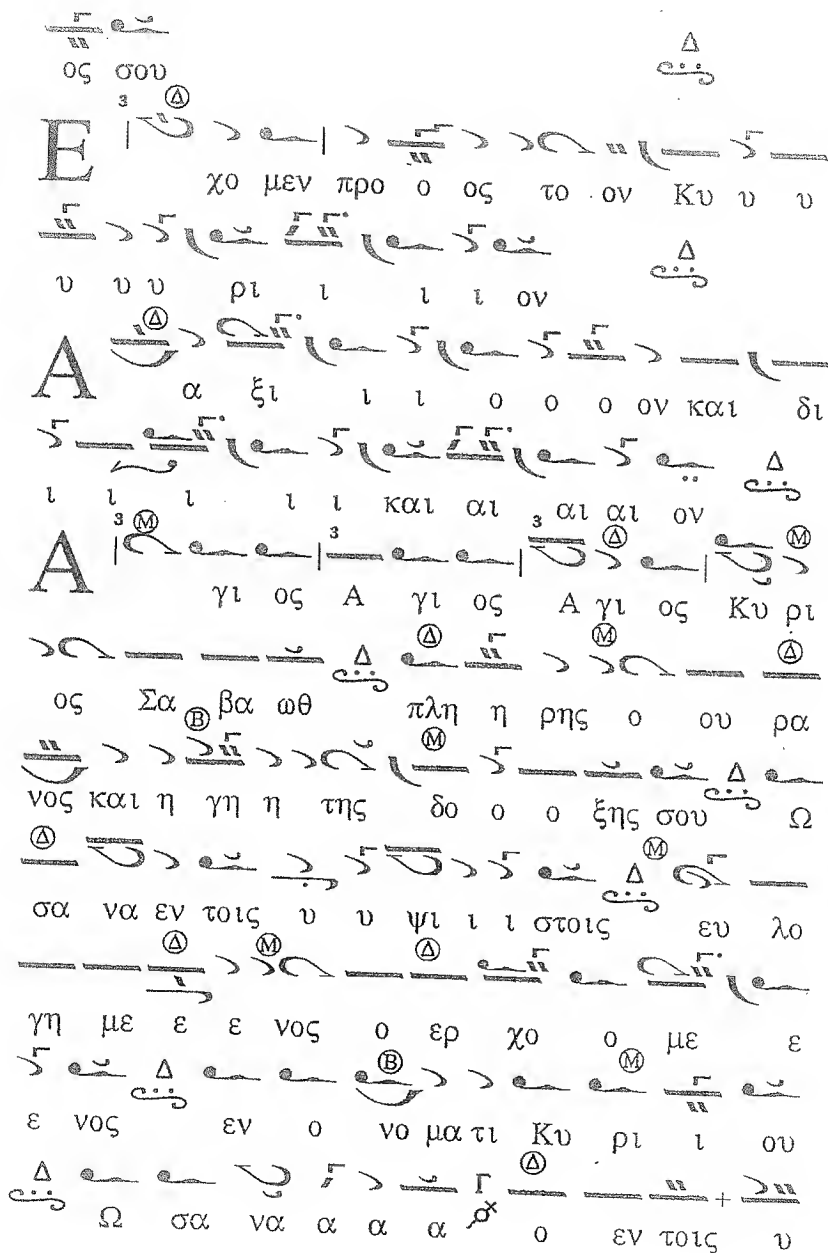 ος σου Δ
3 Δ
Ε χο μεν προ ο ος το ον Κυ υ υ
υ υ υ ρι ι ι ι ον Δ
Δ
Α α ξι ι ι ο ο ο ον και δι
ι ι ι ι ι και αι αι αι ον Δ
3 Μ 3 3 Δ Μ
Α γι ος Α γι ος Α γι ος Κυ ρι
Δ Δ Μ Δ
ος Σα βα ωθ πλη η ρης ο ου ρα
Β Μ Δ
νος και η γη η της δο ο ο ξης σου Ω
Δ Δ Μ
σα να εν τοις υ υ ψι ι ι στοις ευ λο
Δ Μ Δ
γη με ε ε νος ο ερ χο ο με ε
Δ Β Μ
ε νος εν ο νο μα τι Κυ ρι ι ου
Δ Γ Δ +
Ω σα να α α α ο εν τοις υ